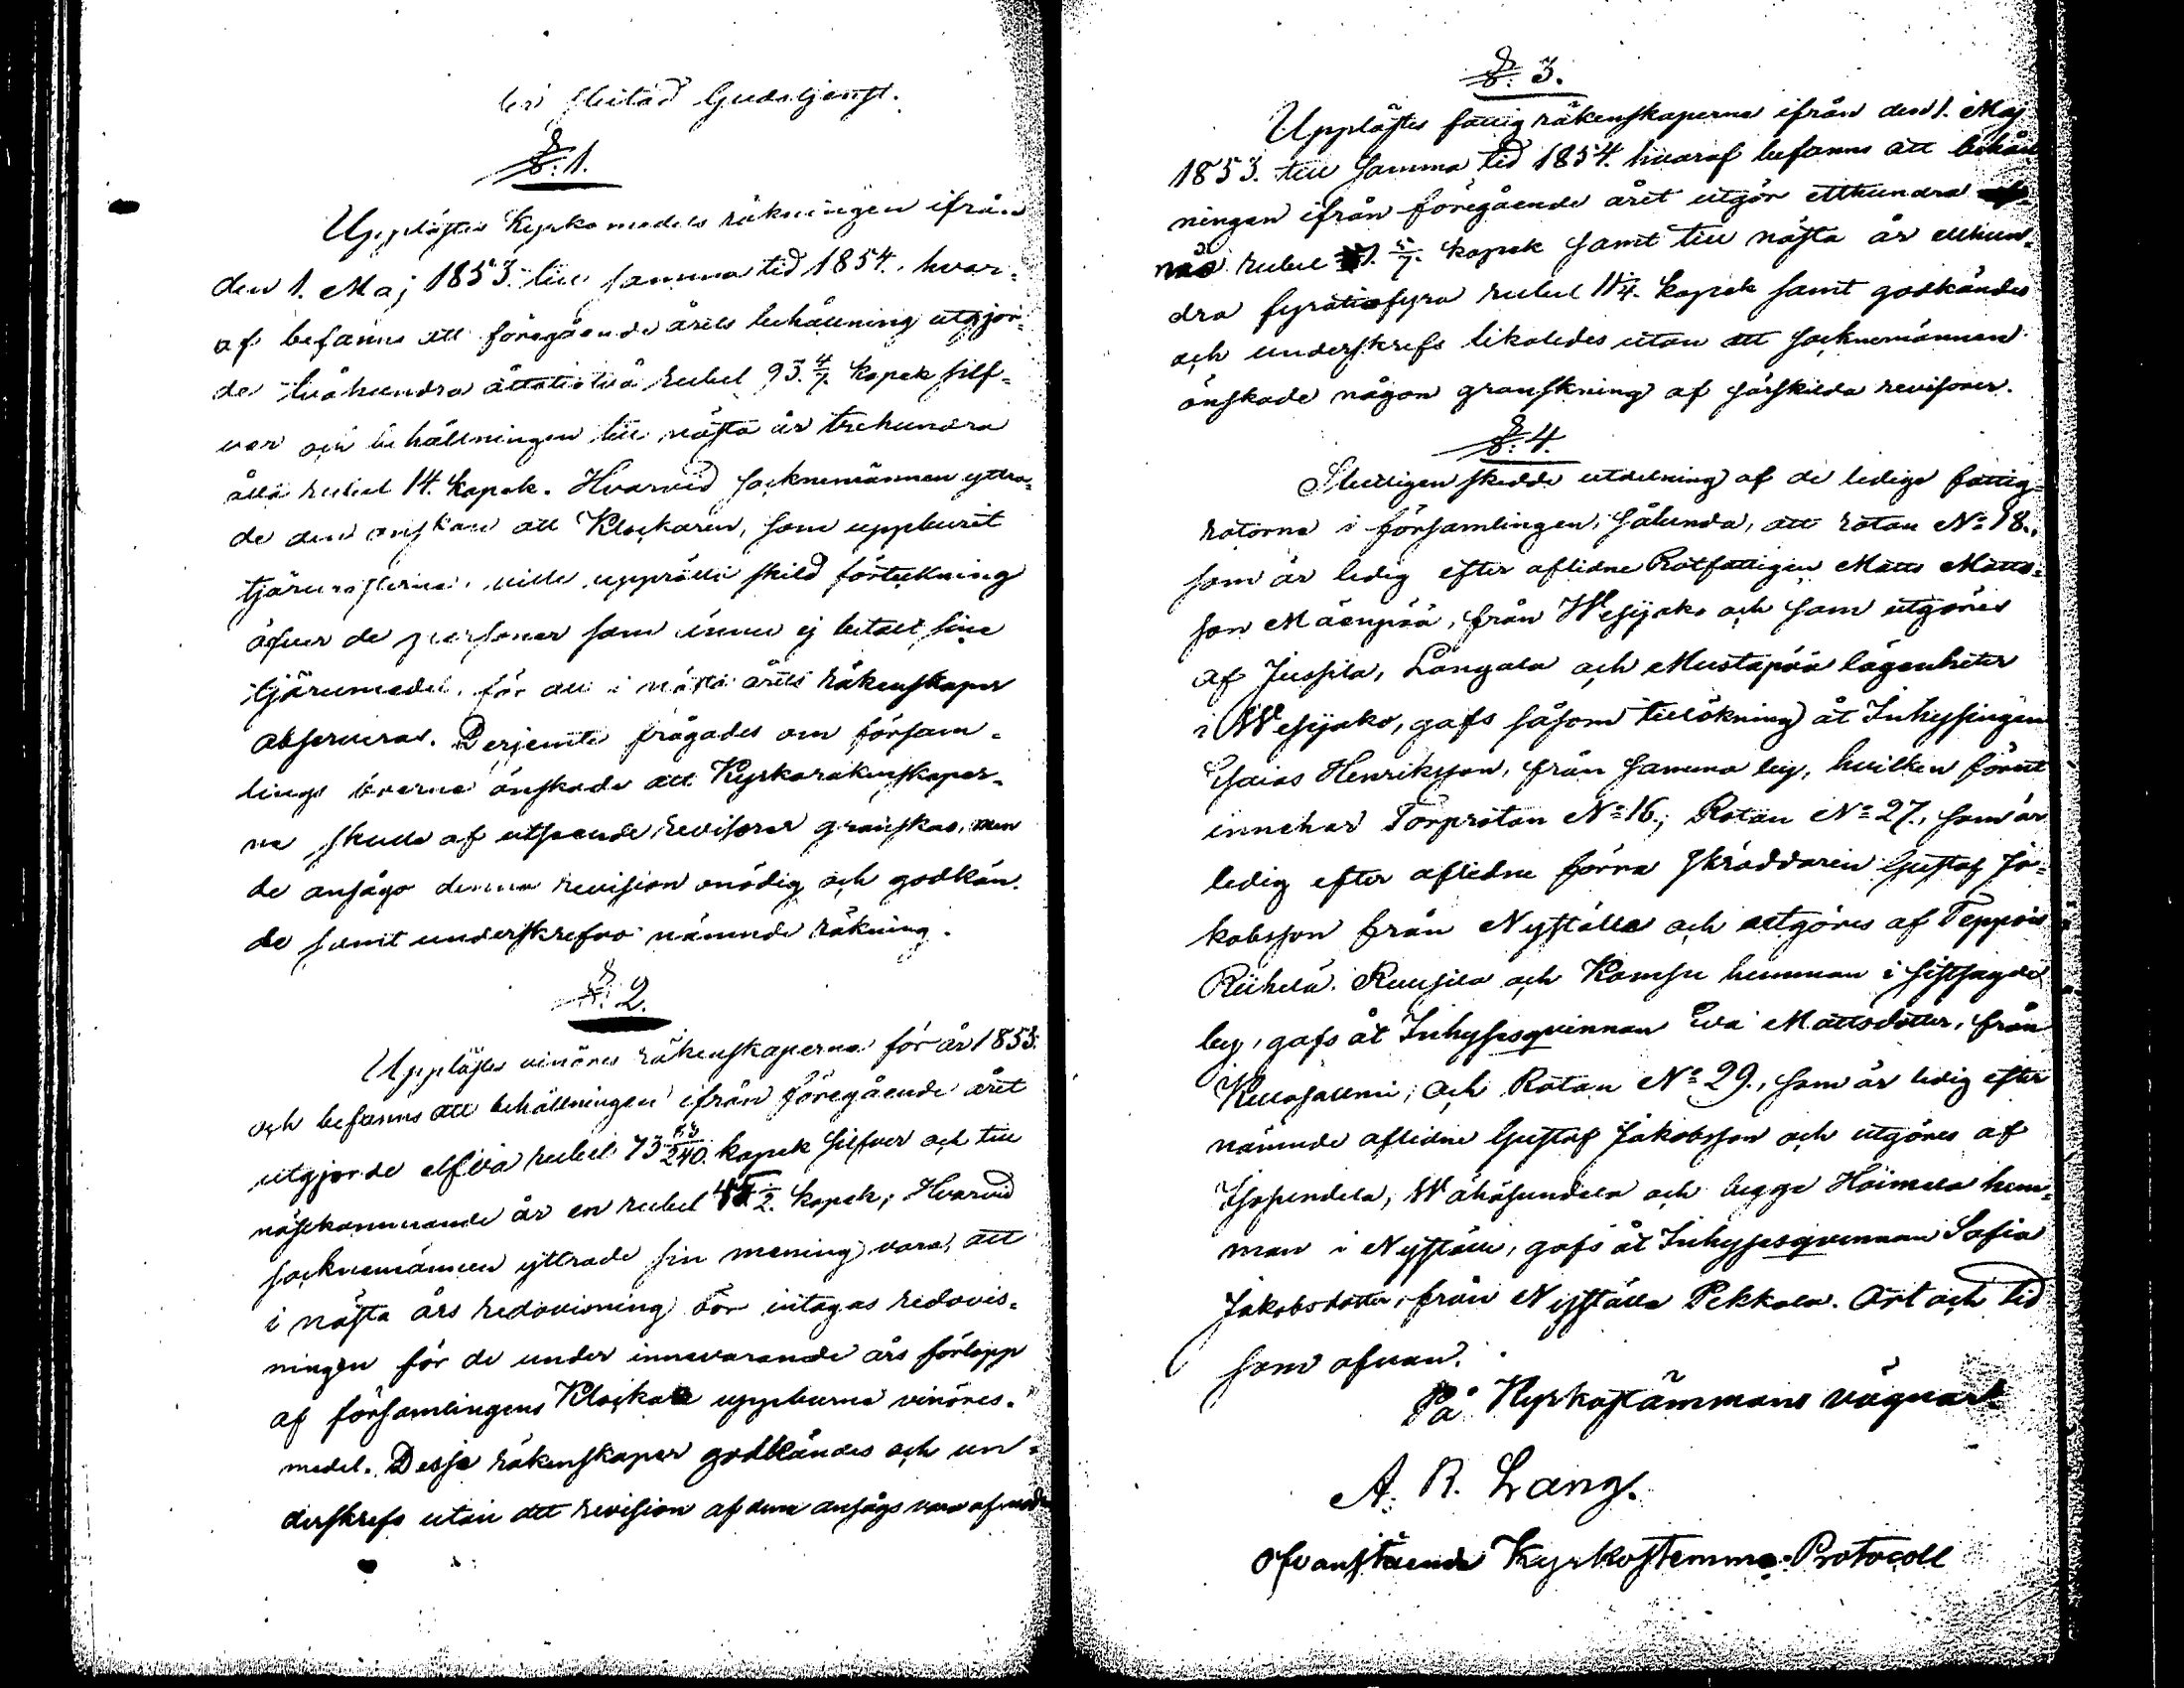 ter slutad Gudstjenst.
§. 1.
Upplästes Kyrkomedels räkningen ifrån
den 1. Maj 1853. till samma tid 1854. hvar¬
af befanns att föregående årets behållning utgjor¬
de tvåhundra åttatiotvå rubel 93. 4/7. kopek silf¬
ver och behållningen till nästa år trehundra
åtta rubel 14. kopek. Hvarvid socknemännen yttra¬
de den önskan att Klockaren, som uppburit
tjärumedlerna, ville upprätta skild förteckning
öfver de personer som ännu ej betalt sine
tjärumedel, för att i nästa årets räkenskaper
observeras. Derjemte frågades om försam¬
lings boerne önskade att Kyrkoräkenskaper¬
na skulle af utseende revisorer granskas, men
de ansågo denna revision onödig och godkän¬
de samt underskrefvo nämnde räkning.
§. 2.
Upplästes vinöres räkenskaperna för år 1853.
och befanns att behållningen ifrån föregående året
utgjorde elfva rubel 73 /240. kopek silfver och till
nästkommande år en rubel 1/2. kopek; Hvarvid
socknemännen yttrade sin mening vara, att
i nästa års redovisning bör intagas redovis¬
ningen för de under innevarande års förlopp
af församlingens Klockare uppburna vinöres¬
medel. Desse räkenskaper godkändes och un¬
derskrefs utan att revision af dem ansågs vara af nöden
§. 3.
Upplästes fattig räkenskaperna ifrån den 1. Maj
1853. till samma tid 1854. hvaraf befanns att behåll
ningen ifrån föregående året utgör etthundra
rubel 5/7. kopek samt till nästa år etthun¬
dra fyratiofyra rubel 11 1/4. kopek samt godkändes
och underskrefs likaledes utan att socknemännen
önskade någon granskning af särskilda revisorer.
§. 4.
Slutligen skedde utdelning af de lediga fattig¬
rotorna i församlingen, sålunda, att rotan No 18.,
som är ledig efter aflidne Rotfattigen Matts Matts¬
son Mäenpää, från Wesijako och som utgöres
af Jussila, Långala och Mustapää lägenheter
i Wesijako, gafs såsom tillökning åt Inhysingen
Esaias Henriksson, från samma by, hvilken förut
innehar Torprotan No 16.; Rotan No 27., som är
ledig efter aflidne förra Skräddaren Gustaf Ja¬
kobsson från Nyystälä och utgöres af Teppois
Riihelä, Ruusila och Kamsu hemman i sistsagde
by, gafs åt Inhysesqvinnan Eva Mattsdotter, från
Kullasalmi; och Rotan No 29., som är ledig efter
nämnde aflidne Gustaf Jakobsson och utgöres af
Isosundela, Wähäsundela och begge Höimelä hem¬
man i Nyystälä, gafs åt Inhysesqvinnan Sofia
Jakobsdotter, från Nyystälä Pekkola. Ort och tid
som ofvan.
På Kyrkostämmans vägnar.
A. R. Lang.
Ofvanstående Kyrkostemmo-Protocoll